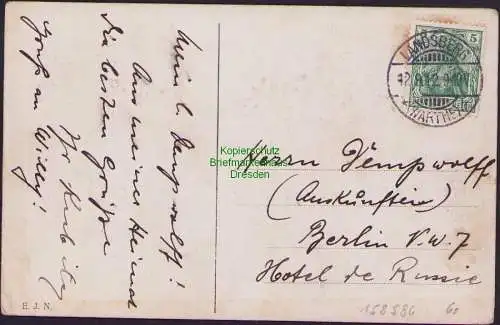 Mein l. Dempwolff!
Aus meiner Heimat
die besten Grüße
Ihr Kubitz
Gruß an Willy!
E. J. N.
5
LANDSBERG
(WARTHE)
Kopierschutz
Briefmarkenhaus
Dresden
Herrn Dempwolff
(Auskunftei)
Berlin N.W. 7
Hotel de Russie
158886